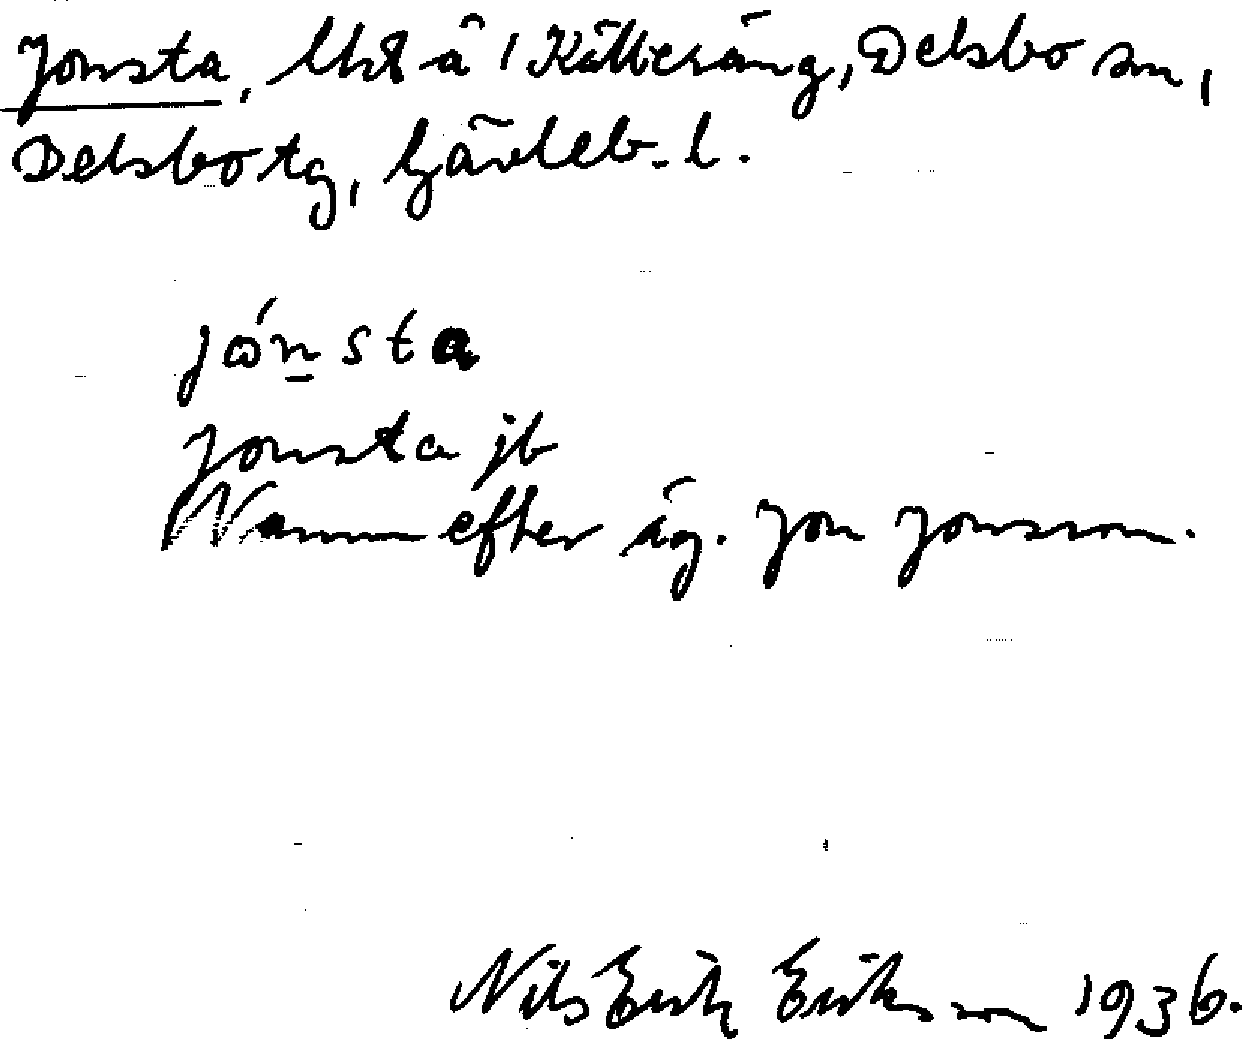 Jonsta, lht å 1 Källeräng, Delsbo sn,
Delsbo tg, Gävleb. l.
jónsta
Jonsta jb
Namn efter äg. Jon Jonsson.
Nils Erik Eriksson 1936.